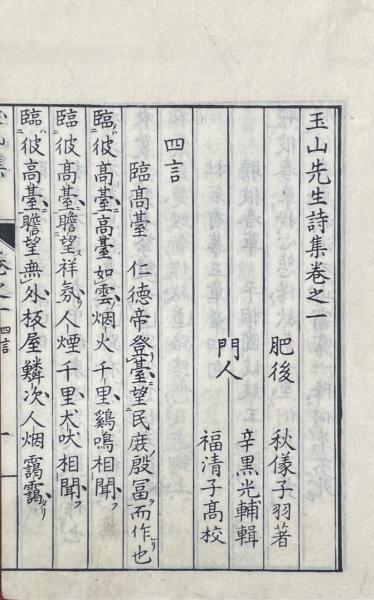 玉山先生詩集卷之一
肥後　秋儀子羽著
門人　辛黒光輔輯
福清子髙校
四言
臨髙臺　仁德帝登臺望民庻殷冨而作也
臨彼髙臺髙臺如雲烟火千里鷄鳴相聞
臨彼髙臺瞻望祥氛人煙千里犬吠相聞
臨彼髙臺瞻望無外板屋鱗次人烟靄靄
四言